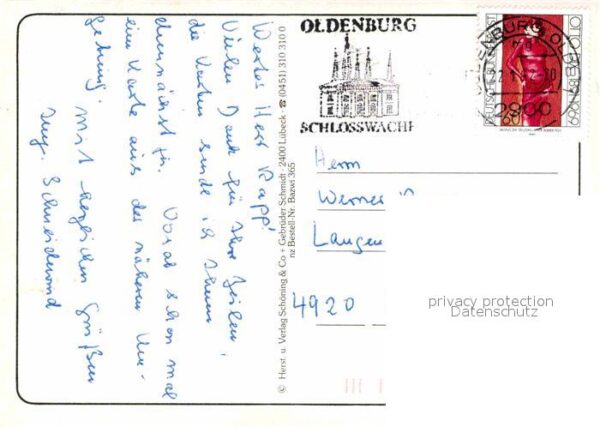 Wertes Herr Rapp!
Vielen Dank für Ihre Zeilen,
die Karten sende ich Ihnen
demnächst zu. Vorab schon mal
ein Karte aus der näheren Um-
gebung. Mit herzlichen Grüßen
Ing. Schneidewind
© Herst. u. Verlag Schöning & Co + Gebrüder Schmidt · 2400 Lübeck · ☎ (0451) 310 310 0
nz Bestell-Nr. Bazwi 365
OLDENBURG
SCHLOSSWACHE
OLDENBURG, OLDB
2900
OTTO
60
Herrn
Werner
Langen
4920
privacy protection
Datenschutz